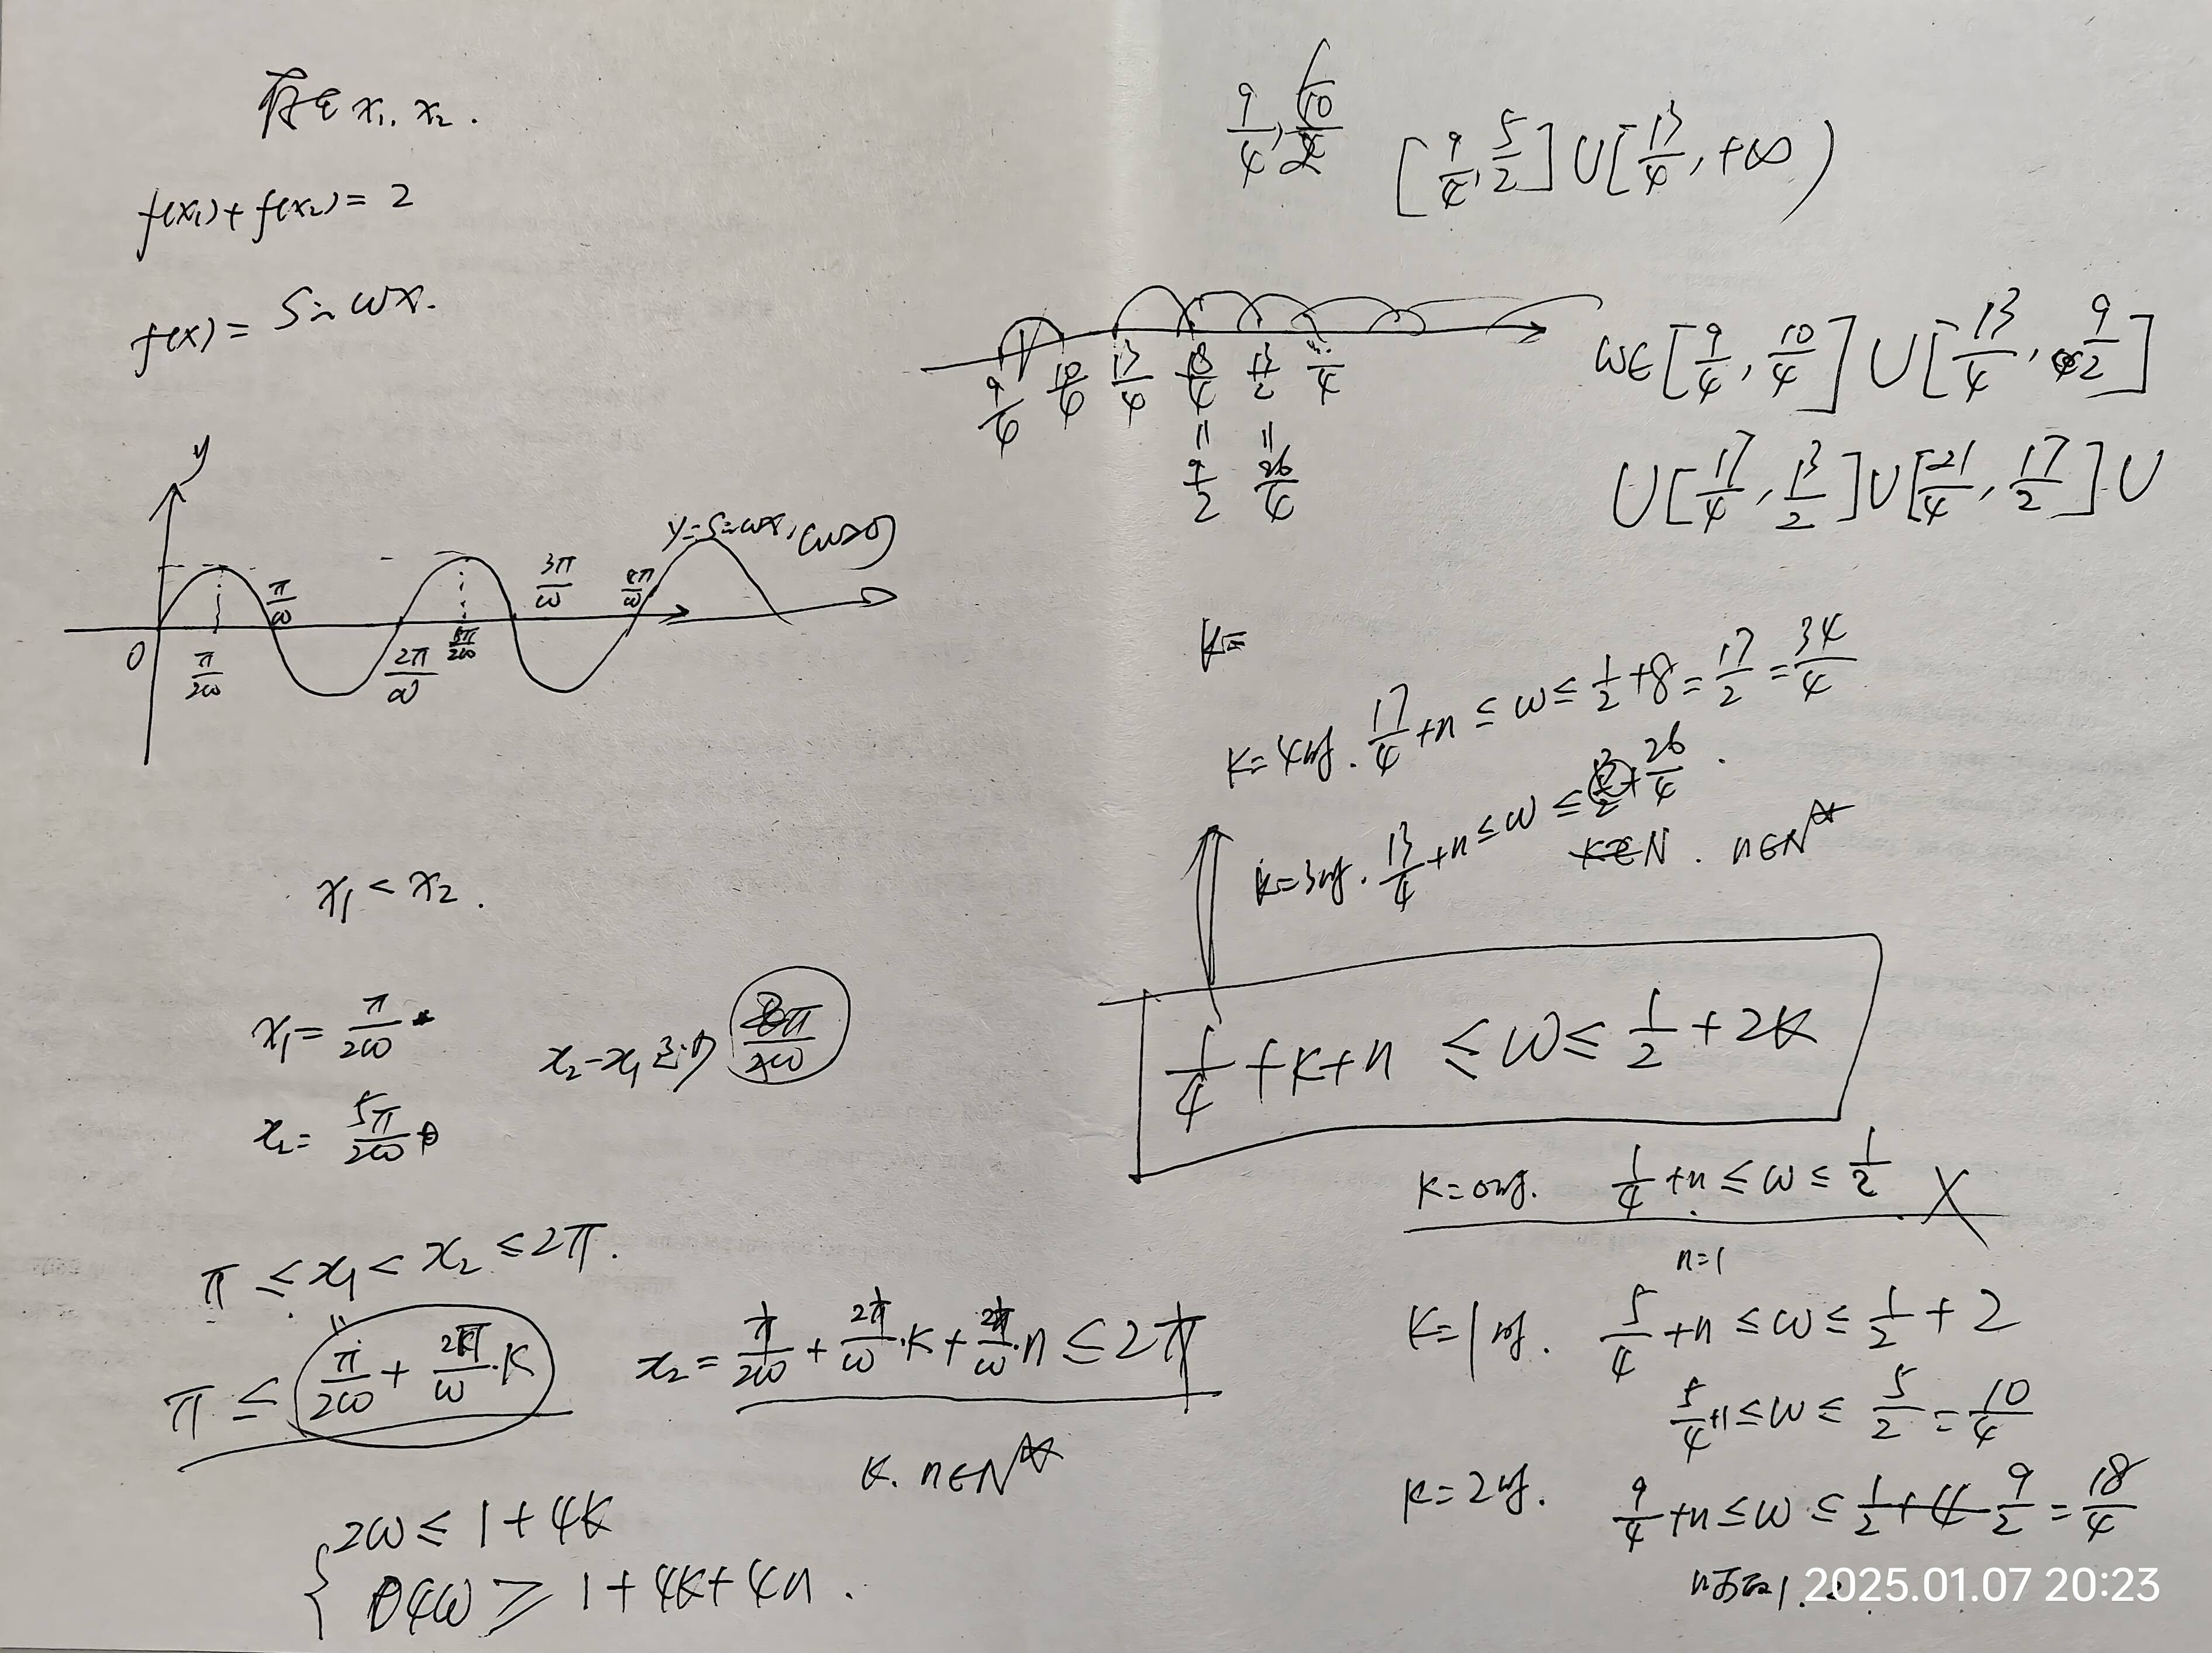 存在 x₁, x₂.
f(x₁) + f(x₂) = 2
f(x) = Sin ωx.
y
y = Sin ωx, (ω>0)
0
π/2ω
π/ω
2π/ω
5π/2ω
3π/ω
4π/ω
x₁ < x₂.
x₁ = π/2ω
x₂ = 5π/2ω
x₂ - x₁ 至少
π ≤ x₁ < x₂ ≤ 2π.
π ≤ π/2ω + 2π/ω · K
x₂ = π/2ω + 2π/ω · K + 2π/ω · n ≤ 2π
K. n∈N*
{ 2ω ≤ 1 + 4K
4ω ≥ 1 + 4K + 4n .
9/4, 10/4
[9/4, 5/2] U [13/4, +∞)
9/4 10/4 13/4 18/4 13/2
9/2 26/4
ω∈ [9/4, 10/4] U [13/4, 9/2]
U [17/4, 13/2] U [21/4, 17/2] U
K=
K=4时. 17/4 + n ≤ ω ≤ 1/2 + 8 = 17/2 = 34/4
K=3时. 13/4 + n ≤ ω ≤ 13/2 26/4 .
K∈N . n∈N*
1/4 + K + n ≤ ω ≤ 1/2 + 2K
K=0时. 1/4 + n ≤ ω ≤ 1/2 X
n=1
K=1时. 5/4 + n ≤ ω ≤ 1/2 + 2
5/4 +1 ≤ ω ≤ 5/2 = 10/4
K=2时. 9/4 + n ≤ ω ≤ 1/2 + 4 9/2 = 18/4
n可取1. 2
2025.01.07 20:23